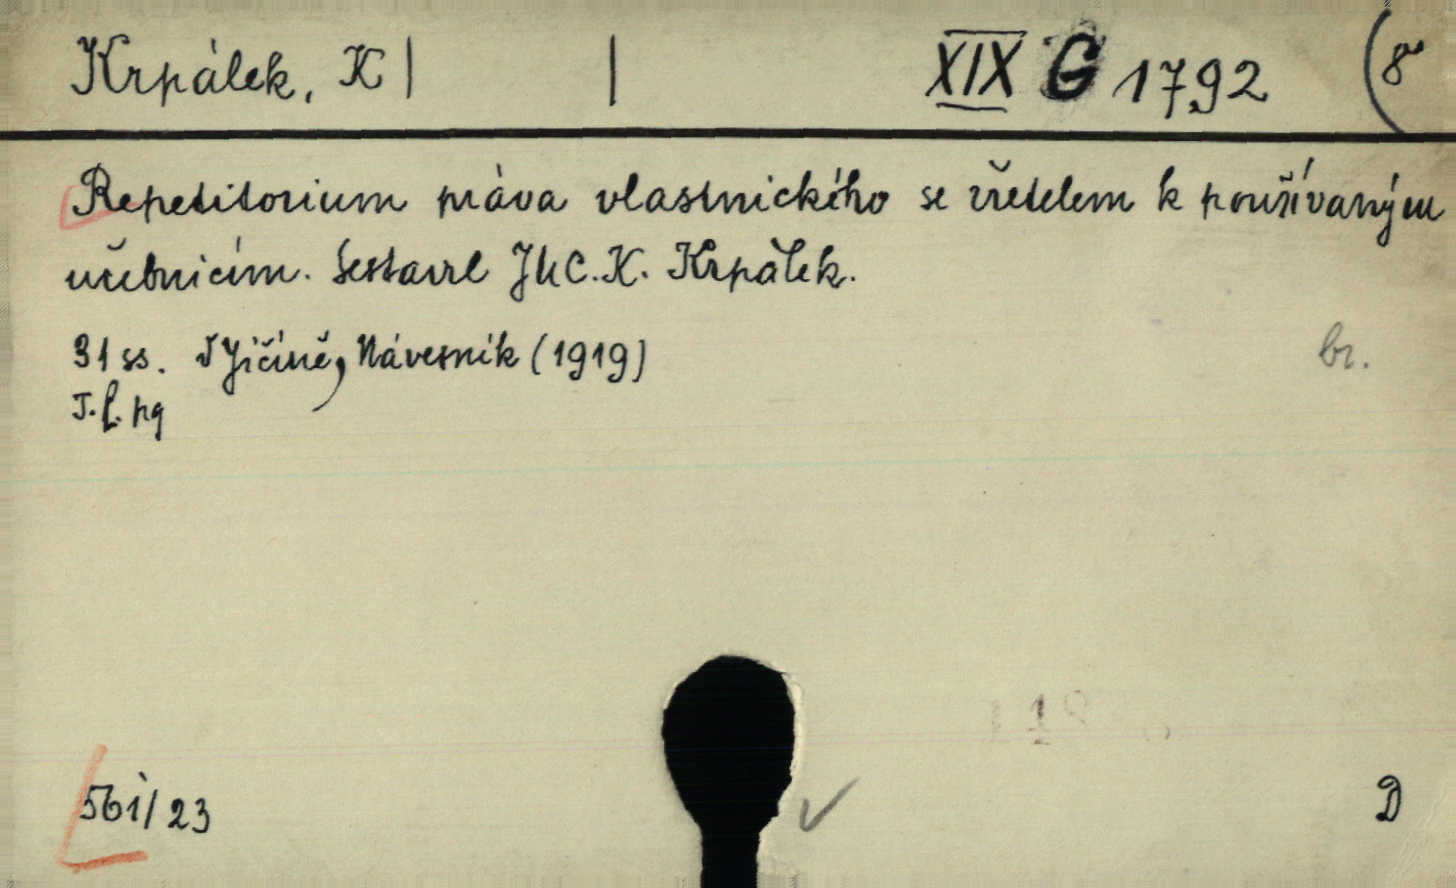 Krpálek, K | | XIX G 1792 (8°
Repetitorium práva vlastnického se zřetelem k používaným
učebnicím. Sestavil JUC. K. Krpálek.
31 ss. V Jičíně, Návesník (1919) br.
T. f. pg
561/23 D